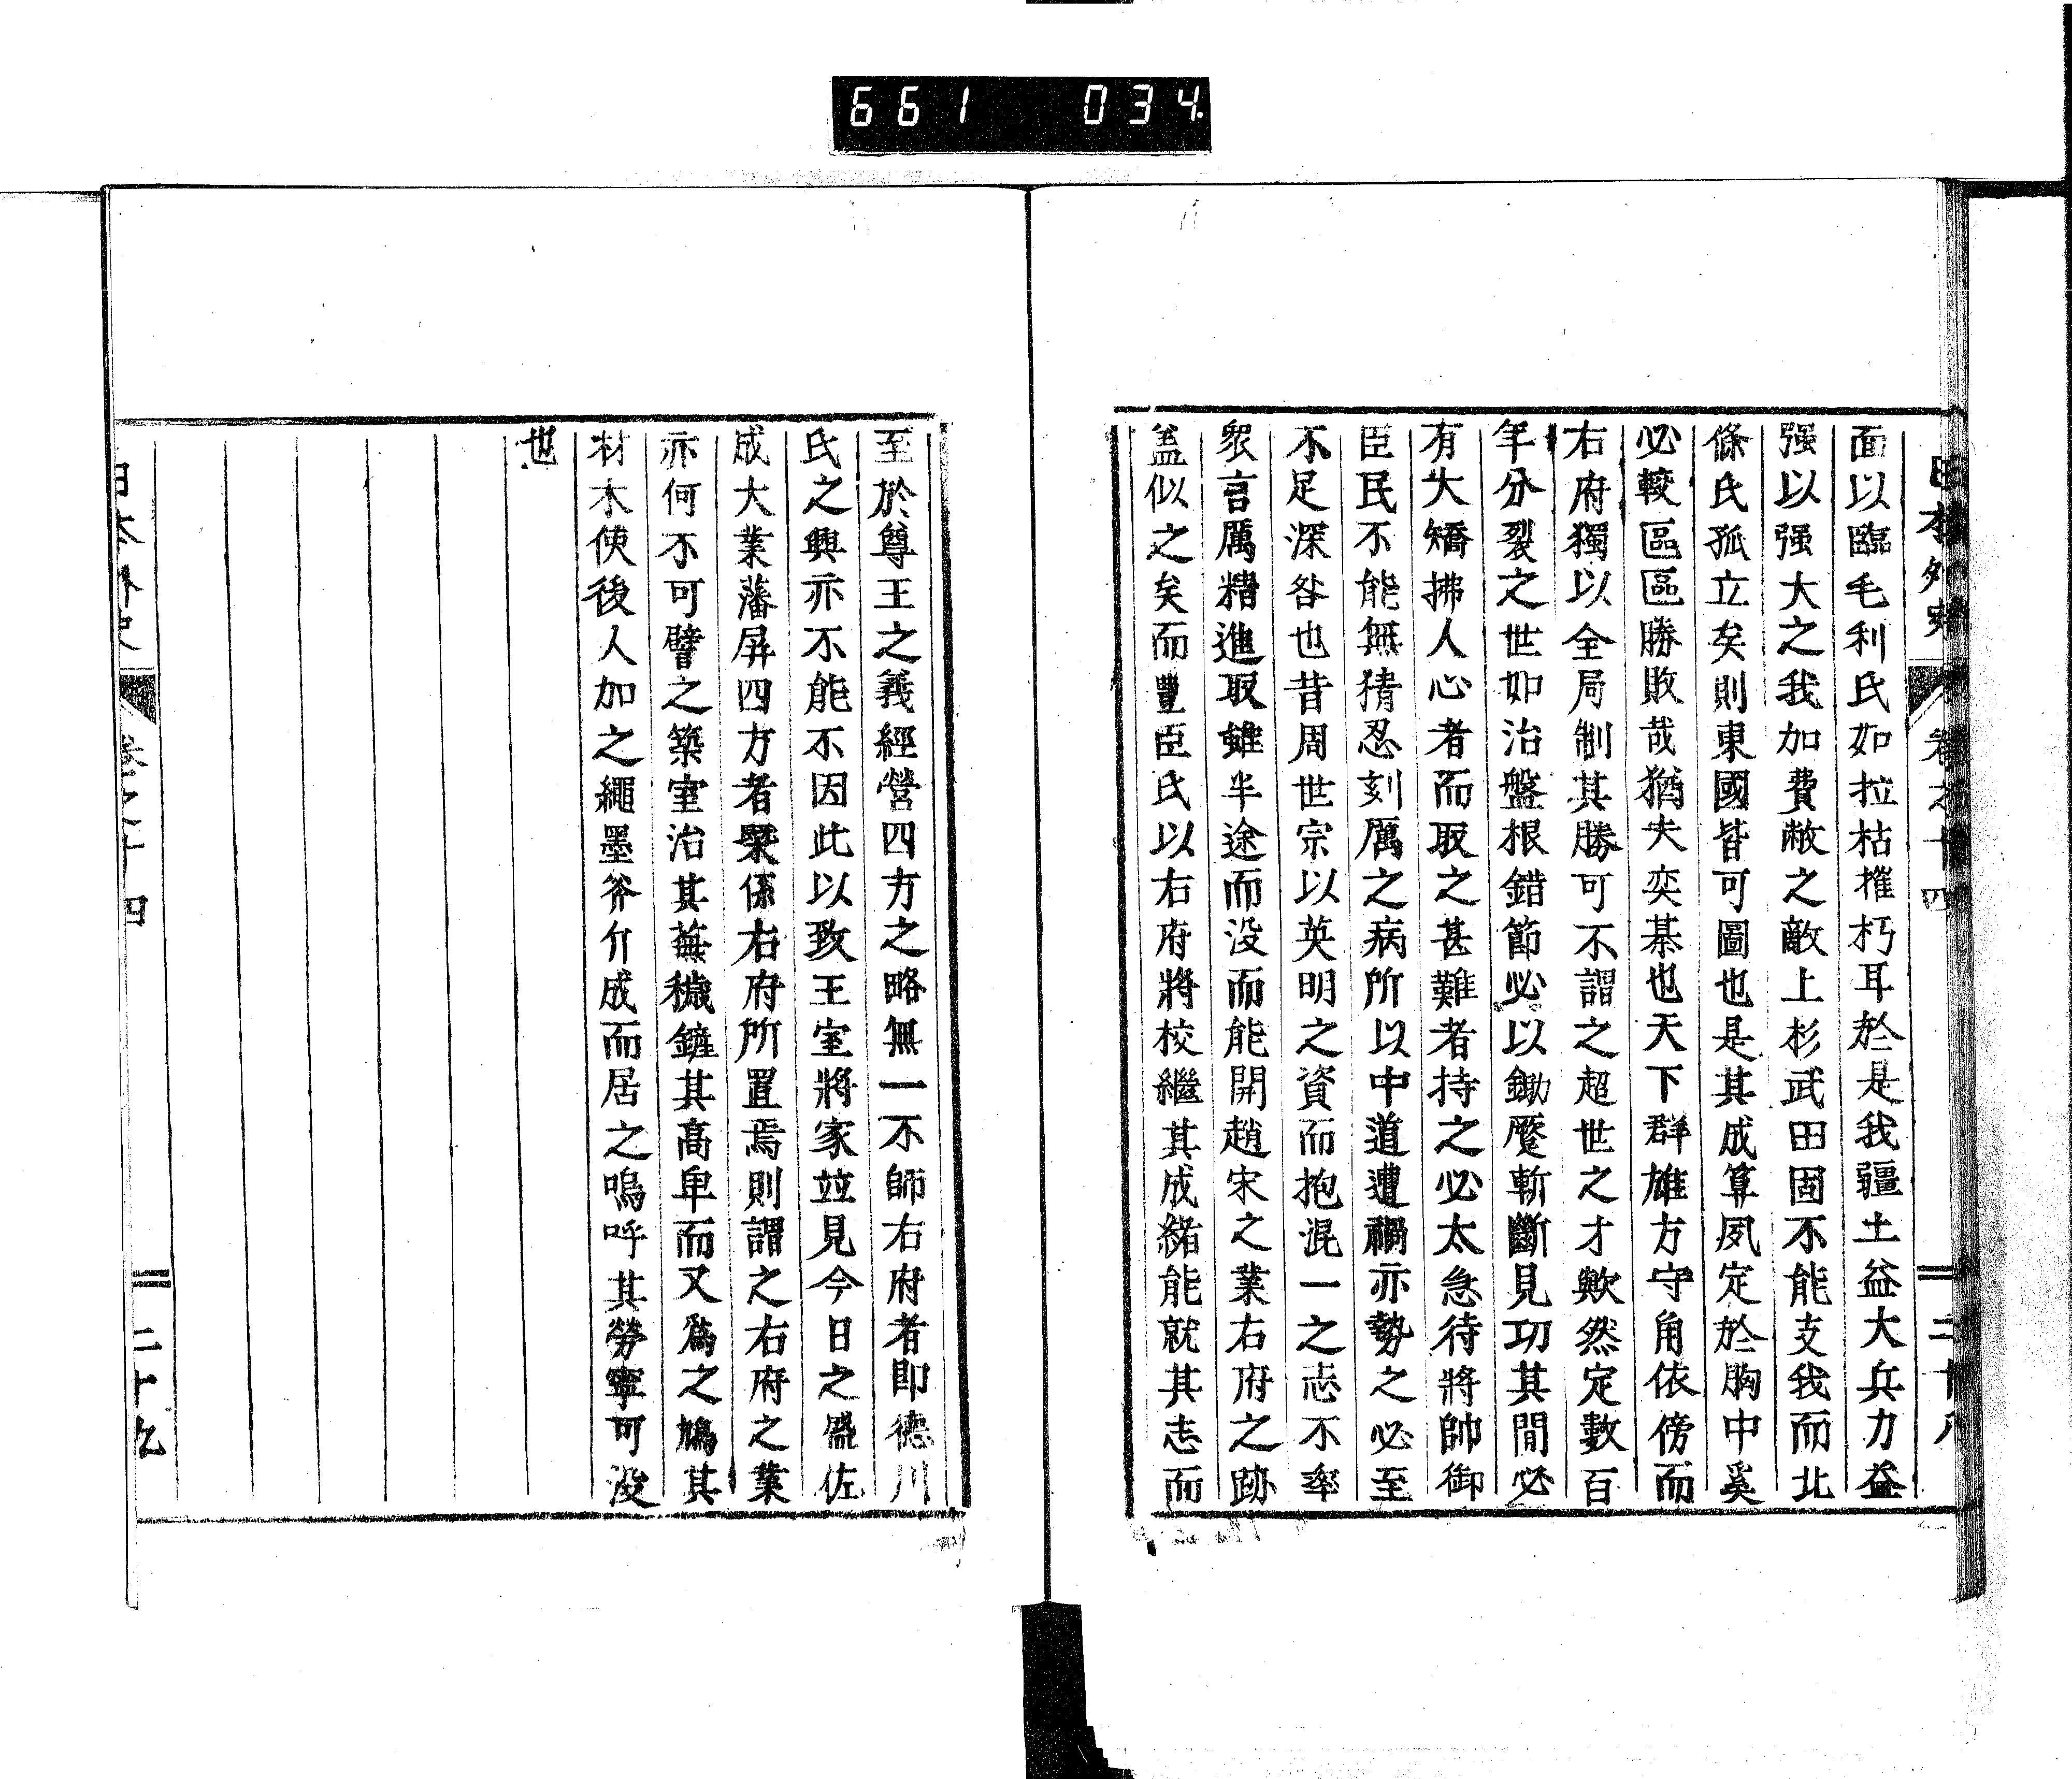 661 034
日本外史 卷之十四 二十八
面以臨毛利氏如拉枯摧朽耳於是我疆土益大兵力益
强以强大之我加費敝之敵上杉武田固不能支我而北
條氏孤立矣則東國皆可圖也是其成算夙定於胸中奚
必較區區勝敗哉猶夫奕棊也天下群雄方守角依傍而
右府獨以全局制其勝可不謂之超世之才歟然定數百
年分裂之世如治盤根錯節必以鋤㔉斬斷見功其間必
有大矯拂人心者而取之甚難者持之必太急待將帥御
臣民不能無猜忍刻厲之病所以中道遭禍亦勢之必至
不足深咎也昔周世宗以英明之資而抱混一之志不率
衆言厲精進取雖半途而没而能開趙宋之業右府之跡
盖似之矣而豐臣氏以右府將校繼其成緒能就其志而
至於尊王之義經營四方之略無一不師右府者即德川
氏之興亦不能不因此以致王室將家竝見今日之盛佐
成大業藩屏四方者槩係右府所置焉則謂之右府之業
亦何不可譬之築室治其蕪穢鏟其高卑而又爲之鳩其
材木使後人加之繩墨斧斤成而居之嗚呼其勞寧可没
也
日本外史 卷之十四 二十九